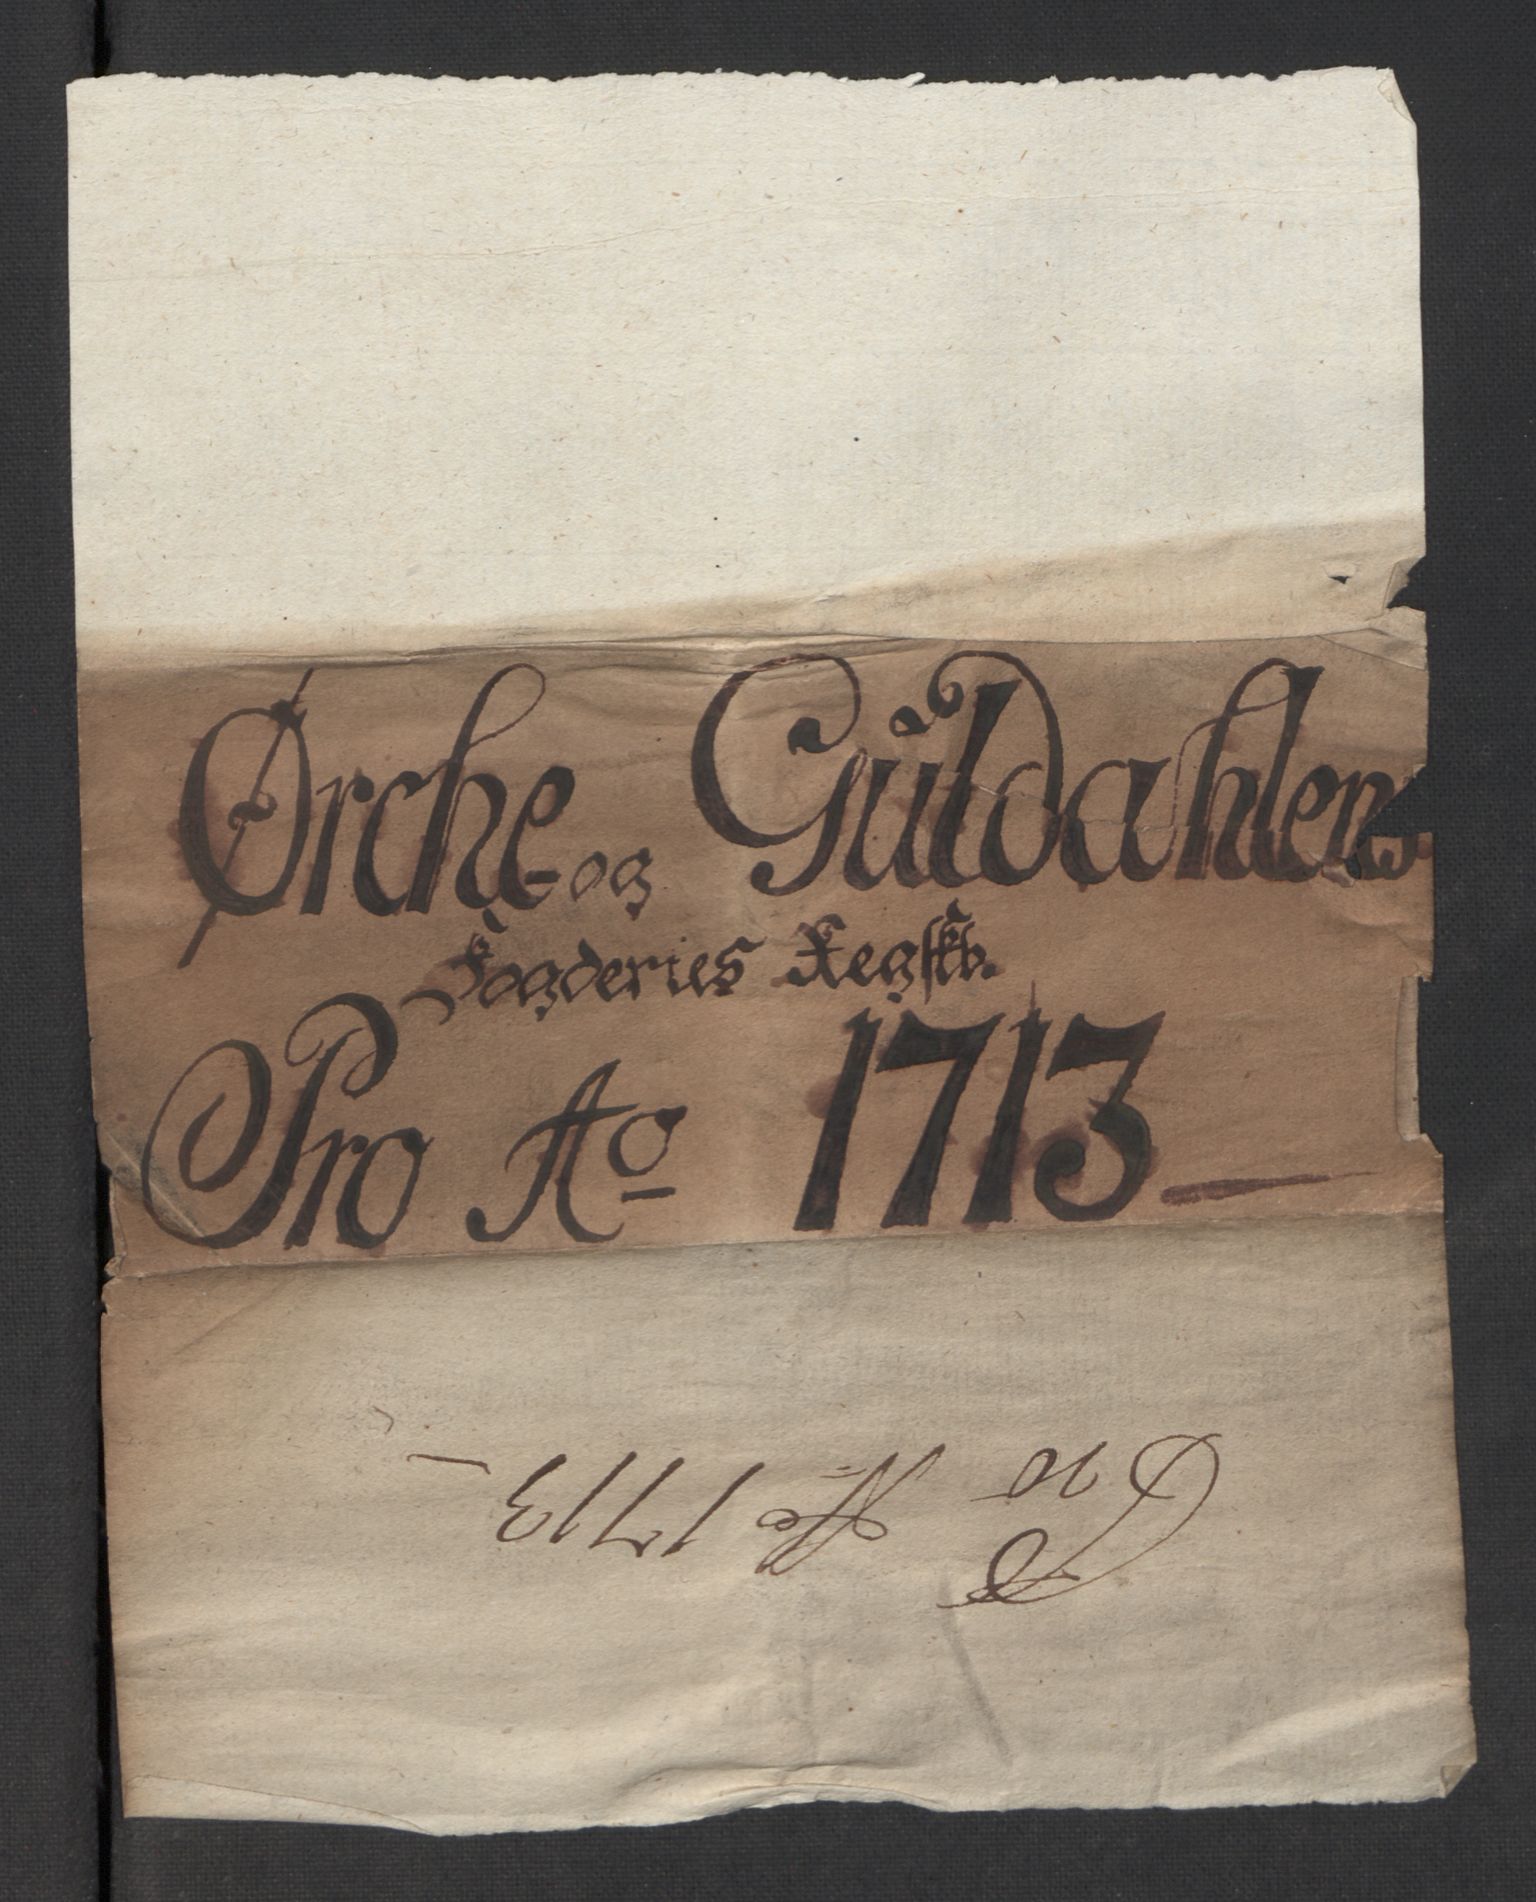 Ørche- og Güldahlens
Fogderies Regskb.
Pro Ao 1713
Pro Ao 1713